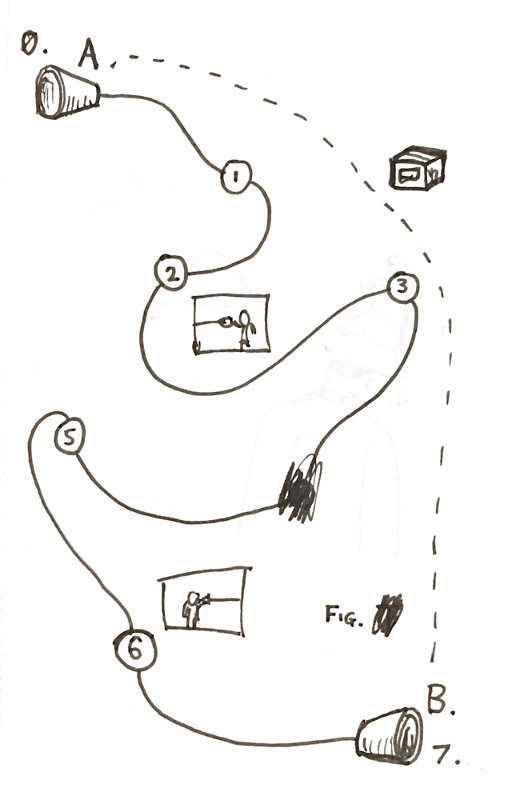 0. A
1
2
3
5
6
FIG.
B.
7.